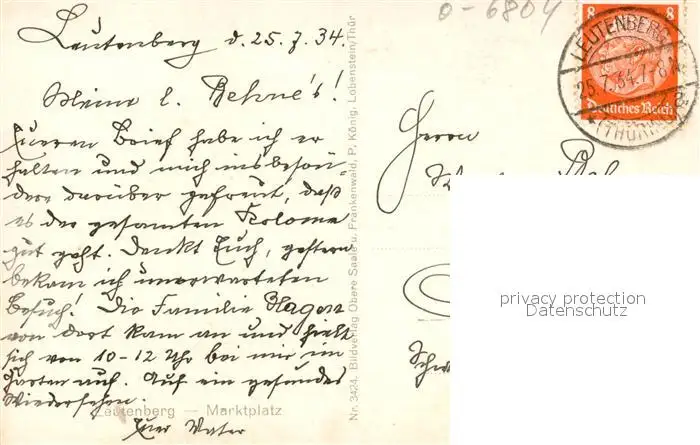 o-6804
Leutenberg d. 25.7.34.
Meine l. Behne's!
Eueren Brief habe ich er
halten und mich insbeson
dere darüber gefreut, daß
es der gesamten Kolonne
gut geht. Denkt Euch, gestern
bekam ich unerwarteten
Besuch! Die Familie Hagen
von dort kam an und hielt
sich von 10-12 Uhr bei mir im
Garten auf. Auf ein gesundes
Wiedersehen.
Euer Vater
Leutenberg — Marktplatz
Nr. 3424. Bildverlag Obere Saale u. Frankenwald, P. König, Lobenstein/Thür
8 8
Deutsches Reich
LEUTENBERG
25.7.34.7-8
(THÜR.)
Herrn
privacy protection
Datenschutz